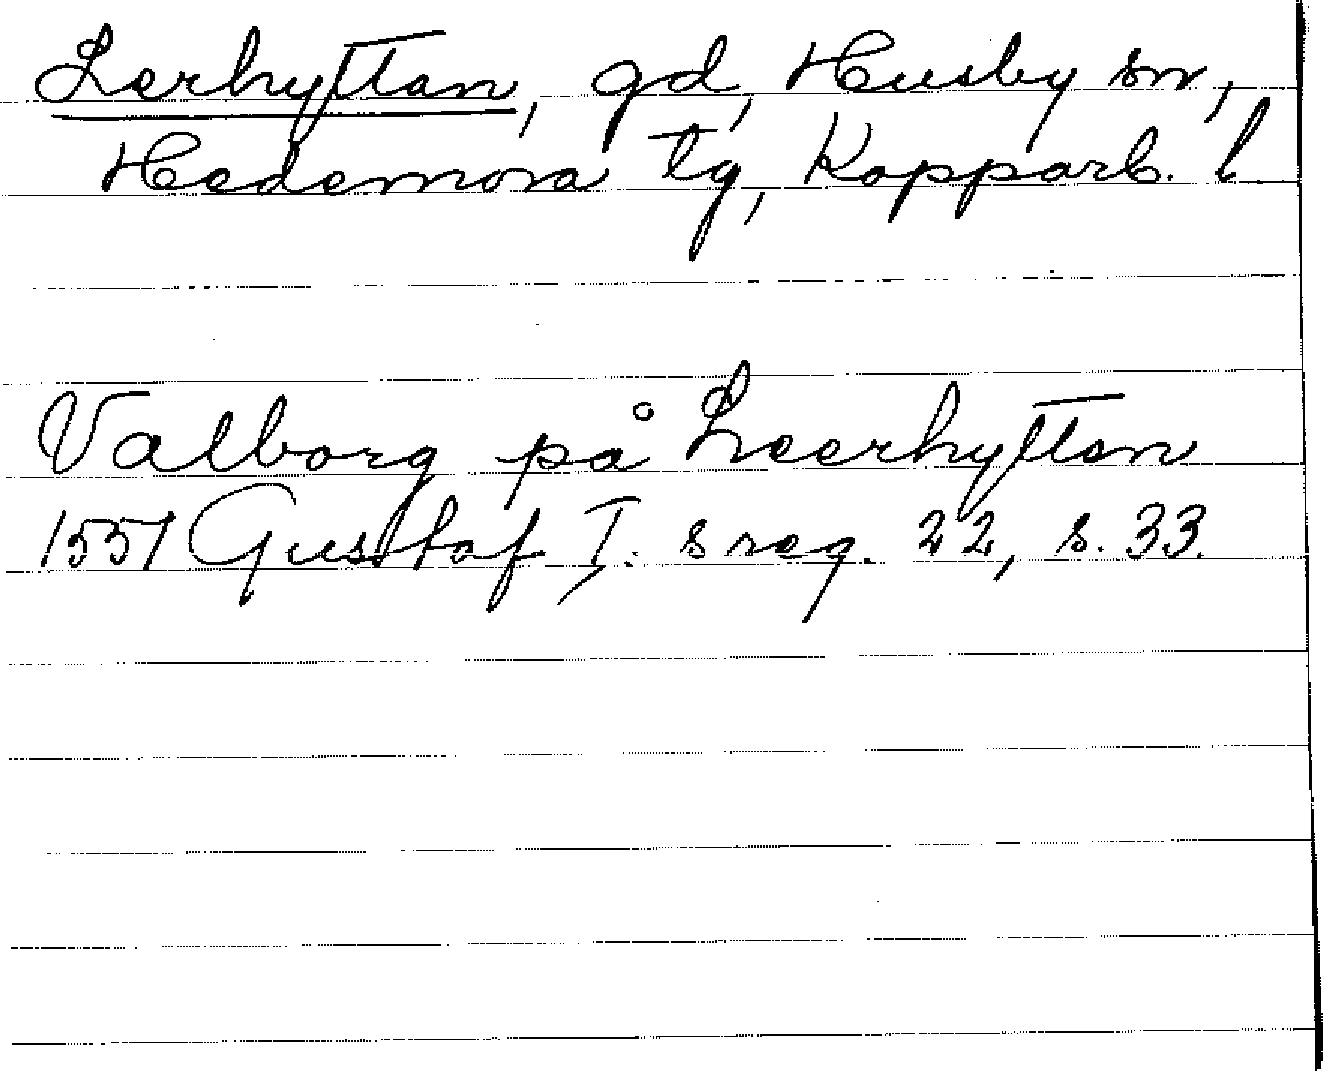 Lerhyttan, gd, Husby sn,
Hedemora tg, Kopparb. l
Valborg på Leerhytten
1551 Gustaf I. s reg. 22, s. 33.